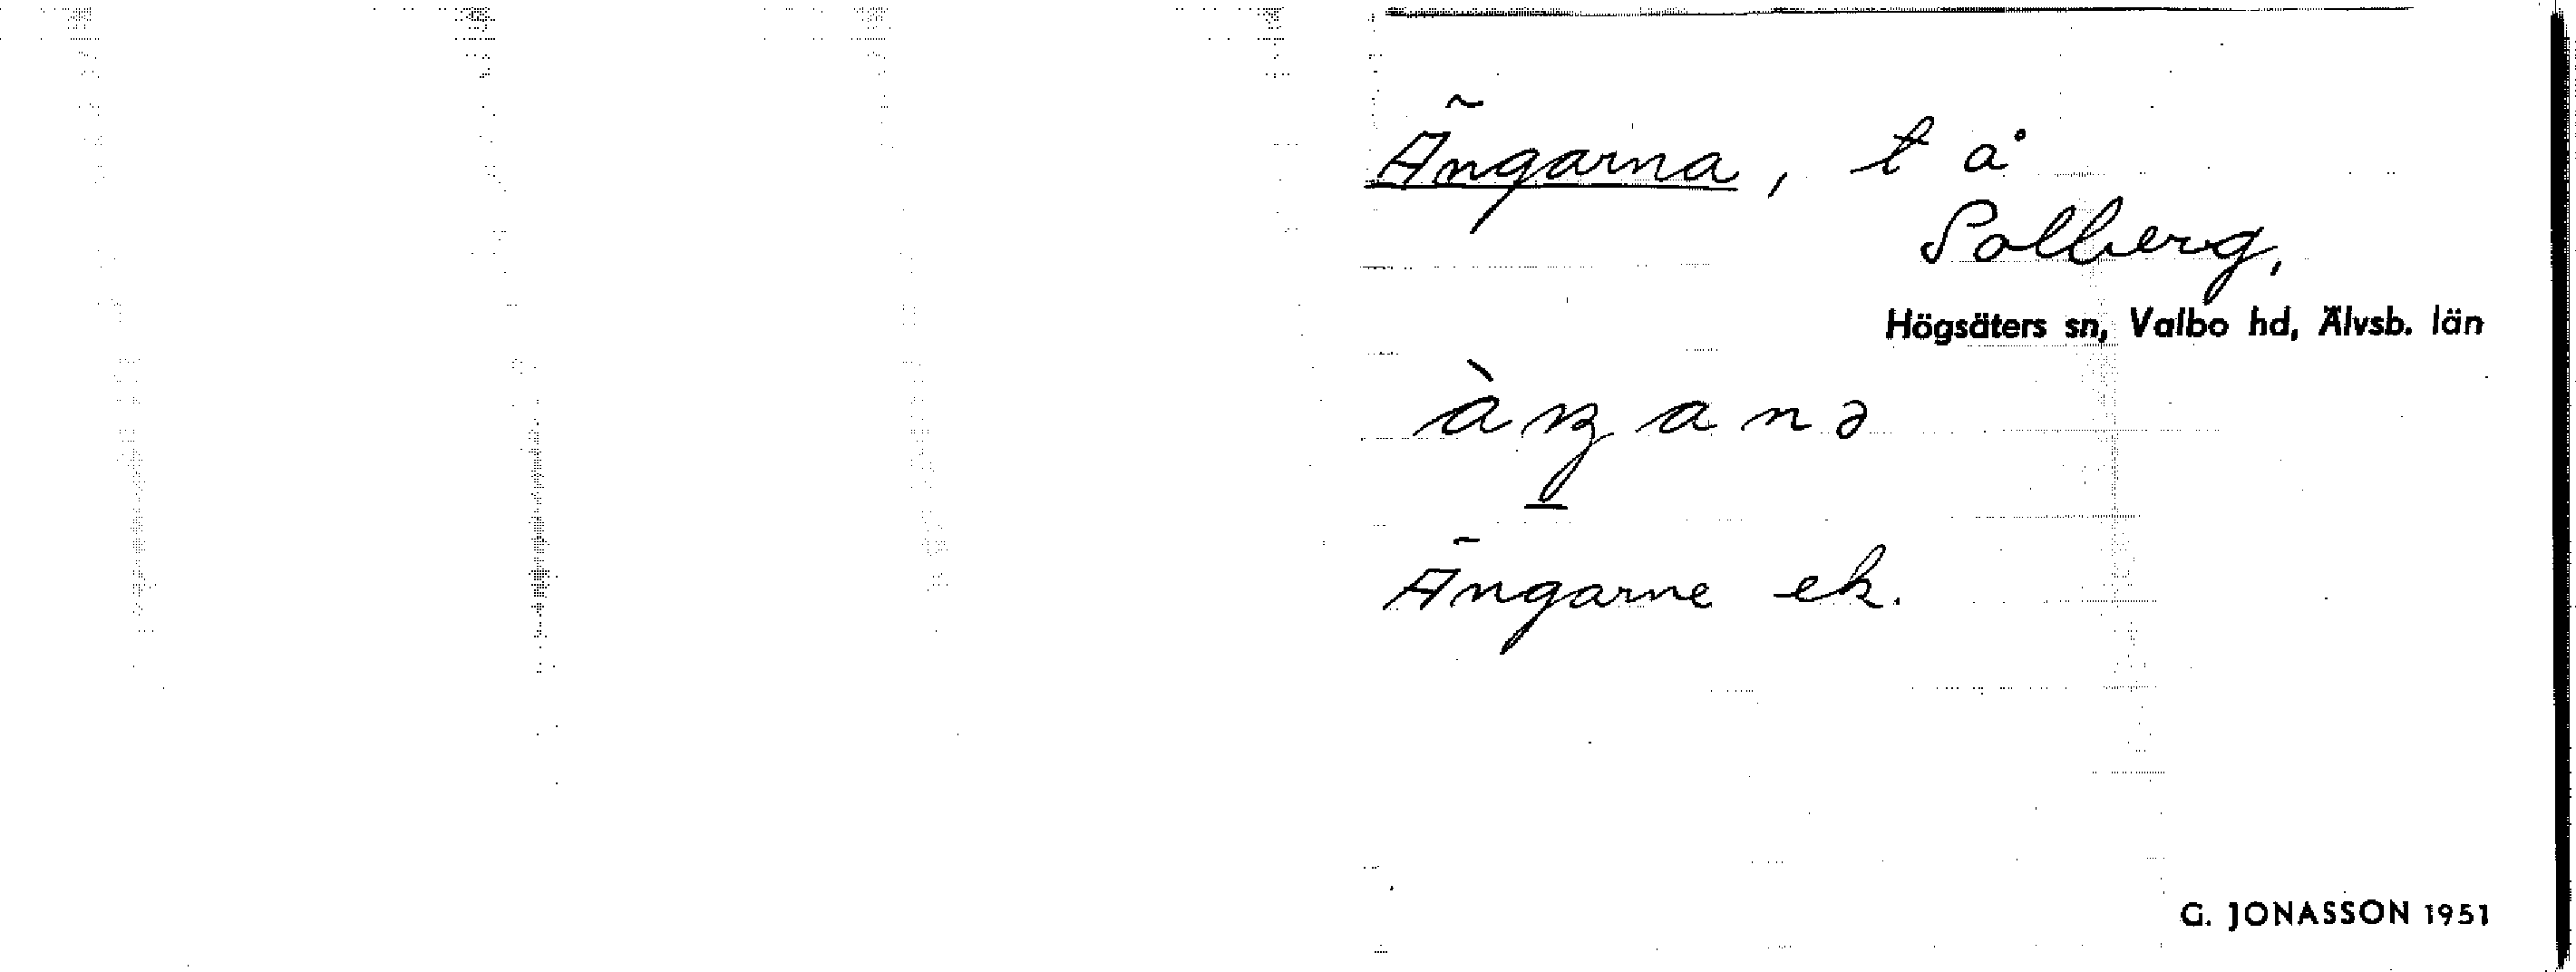 Ängarna, t å
Solberg,
Högsäters sn, Valbo hd, Älvsb. län
Ängarne ek.
G. JONASSON 1951